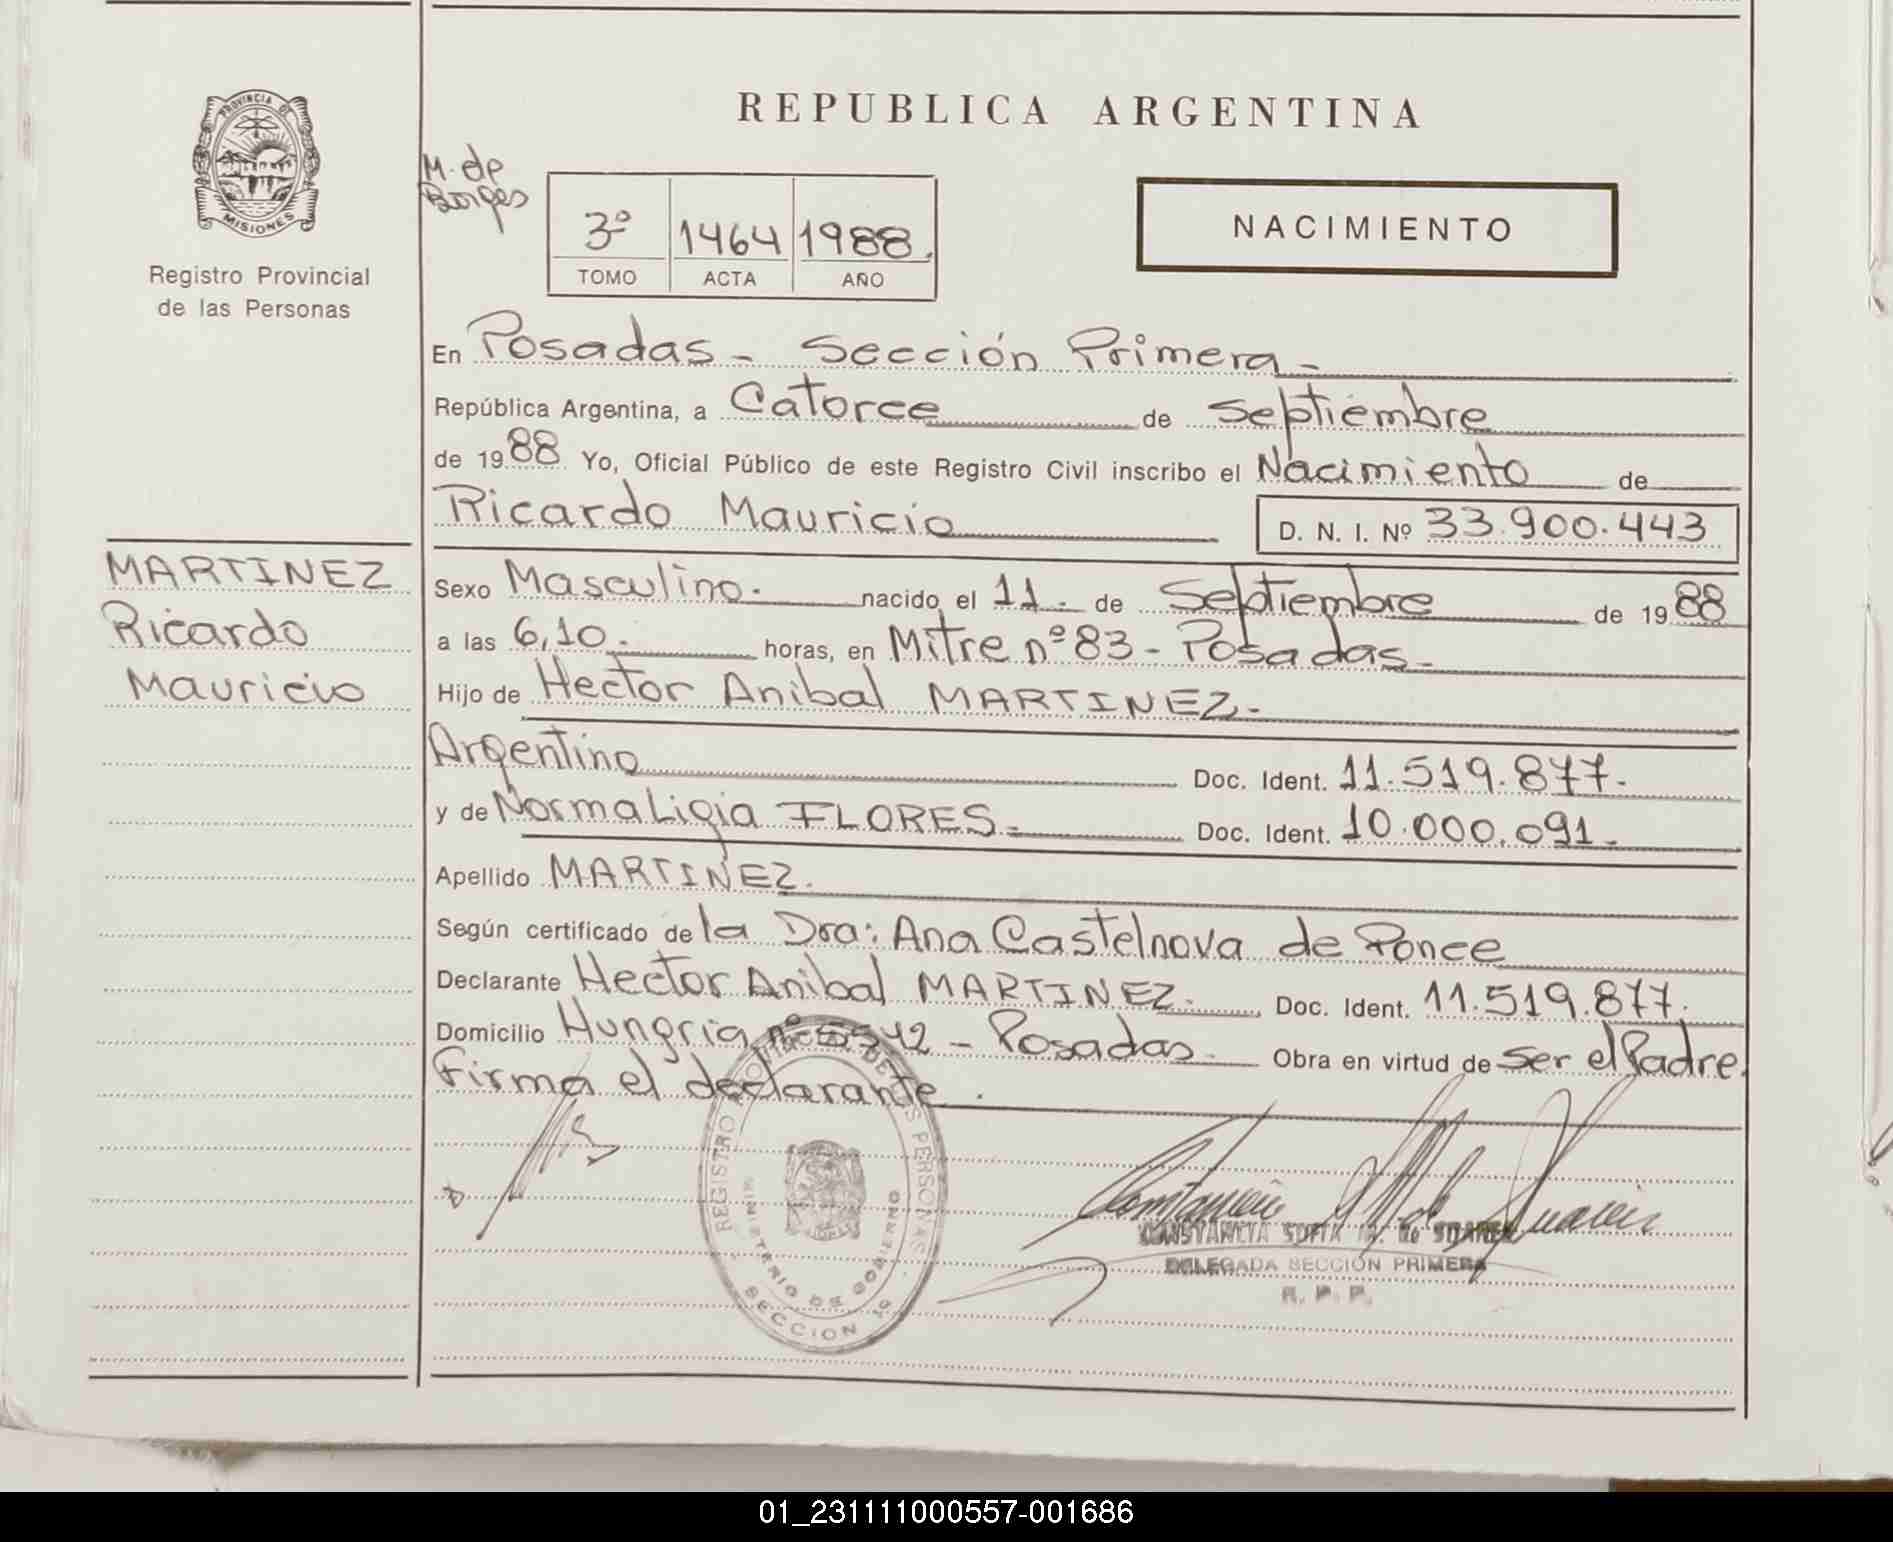 REPUBLICA ARGENTINA
PROVINCIA DE
MISIONES
Registro Provincial
de las Personas
M. de
Borges
3º 1464 1988.
TOMO ACTA AÑO
NACIMIENTO
En Posadas - Sección Primera -
República Argentina, a Catorce de Septiembre
de 1988 Yo, Oficial Público de este Registro Civil inscribo el Nacimiento de
Ricardo Mauricio D. N. I. Nº 33.900.443
MARTINEZ
Ricardo
Mauricio
Sexo Masculino. nacido el 11 - de Septiembre de 1988
a las 6,10. horas, en Mitre nº 83 - Posadas -
Hijo de Hector Anibal MARTINEZ -
Argentino Doc. Ident. 11.519.877.
y de Norma Ligia FLORES - Doc. Ident. 10.000.091.-
Apellido MARTINEZ.
Según certificado de la Dra: Ana Castelnova de Ponce
Declarante Hector Anibal MARTINEZ. Doc. Ident. 11.519.877.
Domicilio Hungria nº 5542 - Posadas - Obra en virtud de ser el Padre.
Firma el declarante.
REGISTRO PROVINCIAL DE LAS PERSONAS
MINISTERIO DE GOBIERNO
SECCION 1º
CONSTANCIA SOFIA M. de SUAREZ
DELEGADA SECCIÓN PRIMERA
R. P. P.
01_231111000557-001686